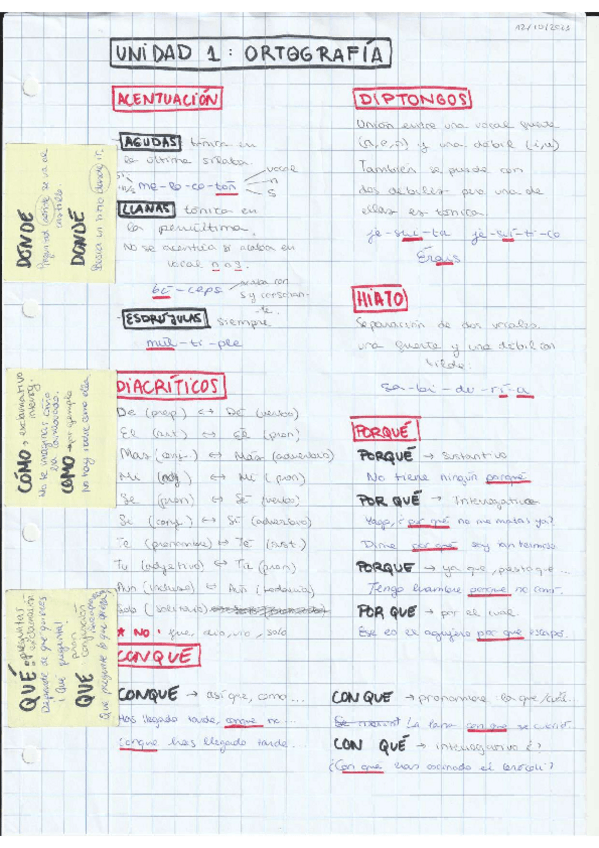 17/10/2023
UNIDAD 1: ORTOGRAFÍA
ACENTUACIÓN
AGUDAS tónica en
la última sílaba.
me-lo-co-tón
vocal
n
s
LLANAS tónica en
la penúltima.
No se acentúa si acaba en
vocal n o s.
bí-ceps
acaba con
s y consonan-
te.
ESDRÚJULAS siempre
múl-ti-ple
DIACRÍTICOS
De (prep.) ↔ Dé (verbo)
El (art.) ↔ Él (pron)
Mas (conj.) ↔ Más (adverbio)
Mi (adj) ↔ Mí (pron)
Se (pron) ↔ Sé (verbo)
Si (conj.) ↔ Sí (adverbio)
Te (pronombre) ↔ Té (sust.)
Tu (adjetivo) ↔ Tú (pron)
Aun (incluso) ↔ Aún (todavía)
Solo (solitario)
* NO: fue, dio, vio, solo
DIPTONGOS
Unión entre una vocal fuerte
(a, e, o) y una débil (i, u)
También se puede con
dos débiles pero una de
ellas es tónica.
je-sui-ta je-suí-ti-co
Érais
HIATO
Separación de dos vocales
una fuerte y una débil con
tilde.
sa-bi-du-rí-a
PORQUÉ
PORQUÉ → sustantivo
No tiene ningún porqué
POR QUÉ → Interrogativo
Yago, ¿por qué no me matas ya?
Dime por qué soy tan
PORQUE → ya que, puesto que...
Tengo hambre porque no comí.
POR QUE → por el cual
Ese es el agujero por que escapó.
CONQUE
CONQUE → así que, como...
Has llegado tarde, conque no...
¿Conque has llegado tarde...
CON QUE → pronombre
La lana con que se
CON QUÉ → interrogativo ¿?
¿Con qué has cocinado el brócoli?
DONDE
DÓNDE
CÓMO → exclamativo
interrog.
No te imaginas cómo
COMO → por ejemplo
No hay nadie como ella
QUÉ → preguntas
exclamación
Depende de qué quieras
¡Qué pregunta!
QUE
pron
conjunción
Que pregunte lo que quiera